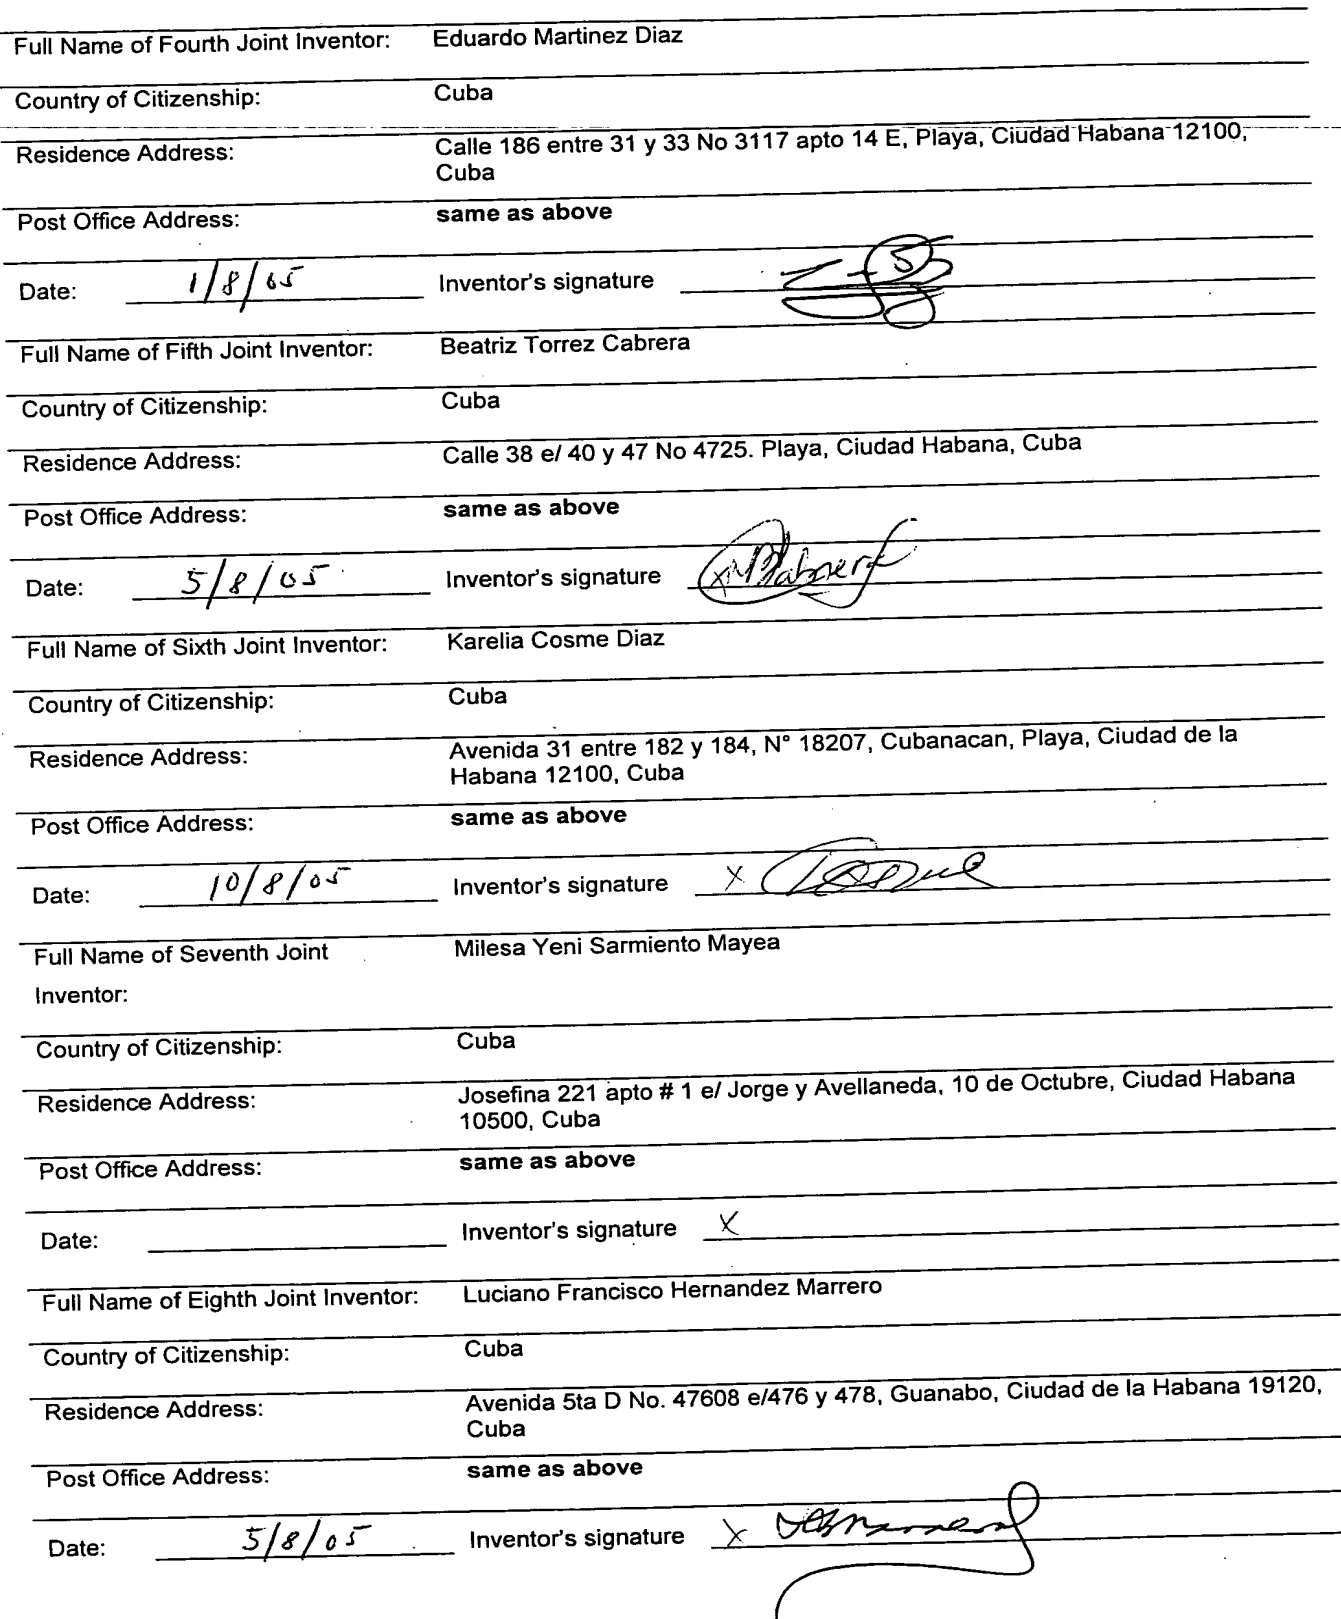 Full Name of Fourth Joint Inventor: Eduardo Martinez Diaz
Country of Citizenship: Cuba
Residence Address: Calle 186 entre 31 y 33 No 3117 apto 14 E, Playa, Ciudad Habana 12100,
Cuba
Post Office Address: same as above
Date: 1/8/05 Inventor's signature
Full Name of Fifth Joint Inventor: Beatriz Torrez Cabrera
Country of Citizenship: Cuba
Residence Address: Calle 38 e/ 40 y 47 No 4725. Playa, Ciudad Habana, Cuba
Post Office Address: same as above
Date: 5/8/05 Inventor's signature X
Full Name of Sixth Joint Inventor: Karelia Cosme Diaz
Country of Citizenship: Cuba
Residence Address: Avenida 31 entre 182 y 184, N° 18207, Cubanacan, Playa, Ciudad de la
Habana 12100, Cuba
Post Office Address: same as above
Date: 10/8/05 Inventor's signature X Cosme
Full Name of Seventh Joint Milesa Yeni Sarmiento Mayea
Inventor:
Country of Citizenship: Cuba
Residence Address: Josefina 221 apto # 1 e/ Jorge y Avellaneda, 10 de Octubre, Ciudad Habana
10500, Cuba
Post Office Address: same as above
Date: Inventor's signature X
Full Name of Eighth Joint Inventor: Luciano Francisco Hernandez Marrero
Country of Citizenship: Cuba
Residence Address: Avenida 5ta D No. 47608 e/476 y 478, Guanabo, Ciudad de la Habana 19120,
Cuba
Post Office Address: same as above
Date: 5/8/05 Inventor's signature X